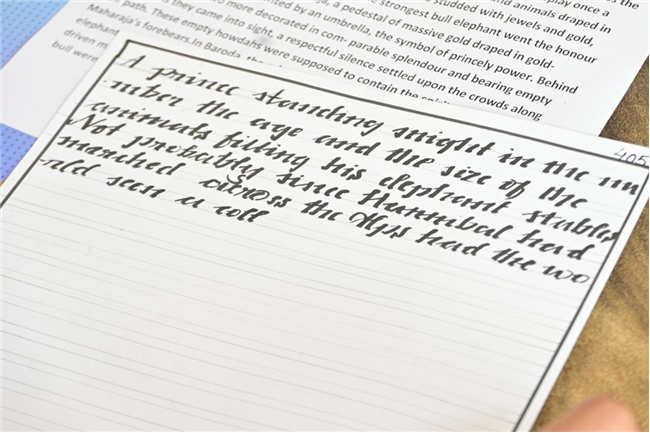 play once a
strongest bull elephant went the honour
studded with jewels and gold,
animals draped in
a pedestal of massive gold draped in gold-
by an umbrella, the symbol of princely power. Behind
more decorated in com- parable splendour and bearing empty
path. These empty howdahs were supposed to contain the
they came into sight, a respectful silence settled upon the crowds along
Maharaja's forebears.In Baroda, the
elephant
driven m
bull were
405
A prince standing snight in the nu
-mber the age and the size of the
animals filling his elephant stables
Not probably since Hannibal had
marched across the Alps had the wo
-rld seen a coll